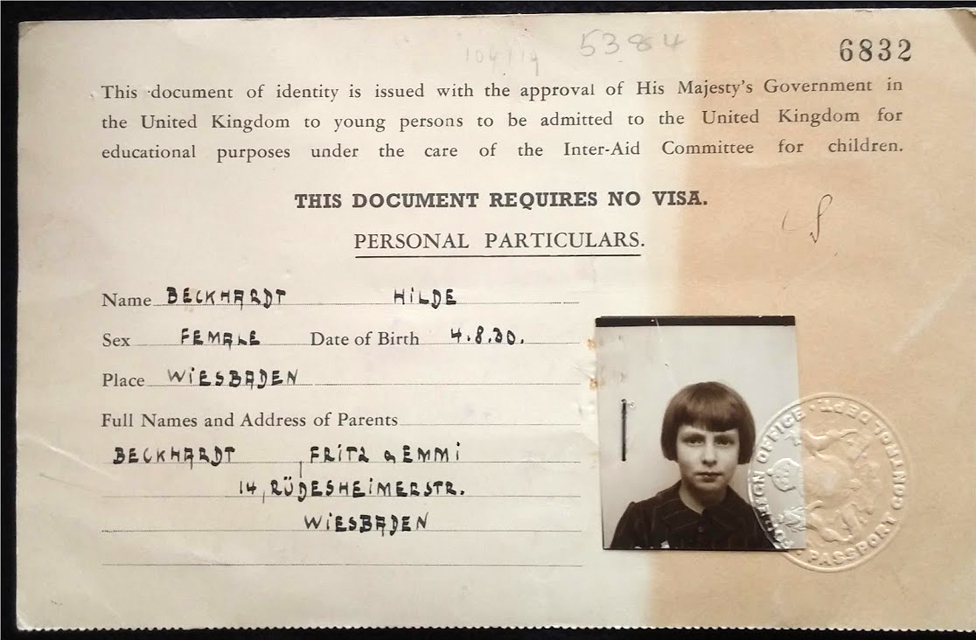 5384
6832
This document of identity is issued with the approval of His Majesty's Government in
the United Kingdom to young persons to be admitted to the United Kingdom for
educational purposes under the care of the Inter-Aid Committee for children.
THIS DOCUMENT REQUIRES NO VISA.
PERSONAL PARTICULARS.
Name BECKHARDT HILDE
Sex FEMALE Date of Birth 4.8.30.
Place WIESBADEN
Full Names and Address of Parents
BECKHARDT FRITZ & EMMI
14, RÜDESHEIMERSTR.
WIESBADEN
FOREIGN OFFICE · PASSPORT CONTROL DEPT ·